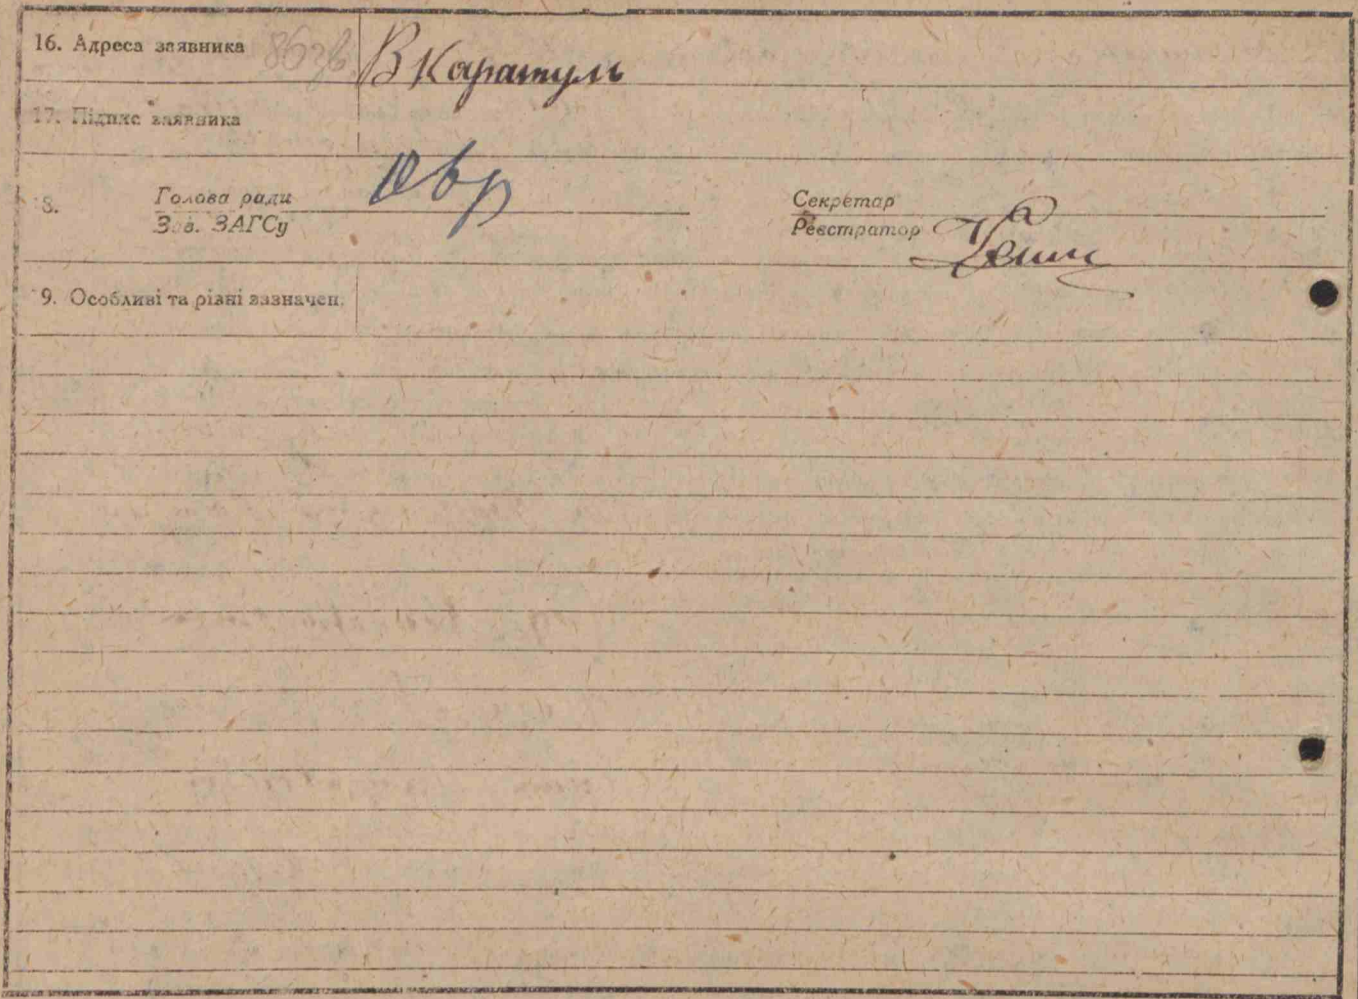 16. Адреса заявника В Каратуль
17. Підпис заявника
8. Голова ради Секретар
Зав. ЗАГСу Реєстратор
9. Особливі та різні зазначен.